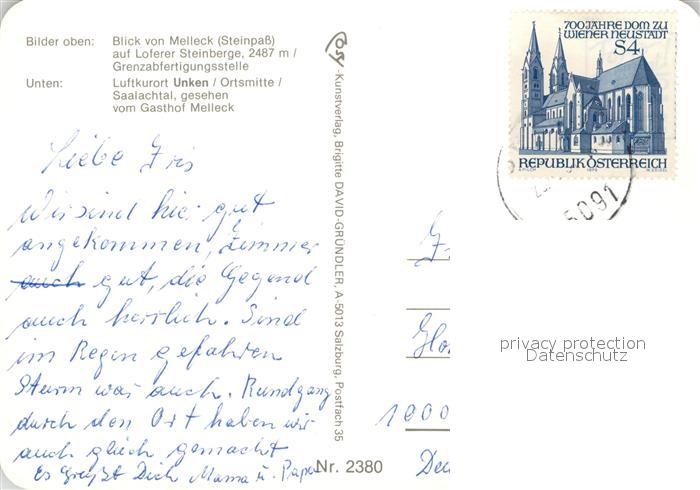 Bilder oben: Blick von Melleck (Steinpaß)
auf Loferer Steinberge, 2487 m /
Grenzabfertigungsstelle
Unten: Luftkurort Unken / Ortsmitte /
Saalachtal, gesehen
vom Gasthof Melleck
Liebe Iris
Wir sind hier gut
angekommen, Zimmer
auch gut, die Gegend
auch herrlich. Sind
im Regen gefahren
Sturm war auch. Rundgang
durch den Ort haben wir
auch gleich gemacht
Es grüßt Dich Mama u. Papa
Nr. 2380
-Kunstverlag, Brigitte DAVID-GRÜNDLER, A-5013 Salzburg, Postfach 35
700 JAHRE DOM ZU
WIENER NEUSTADT
S4
REPUBLIK ÖSTERREICH
5091
1000
privacy protection
Datenschutz